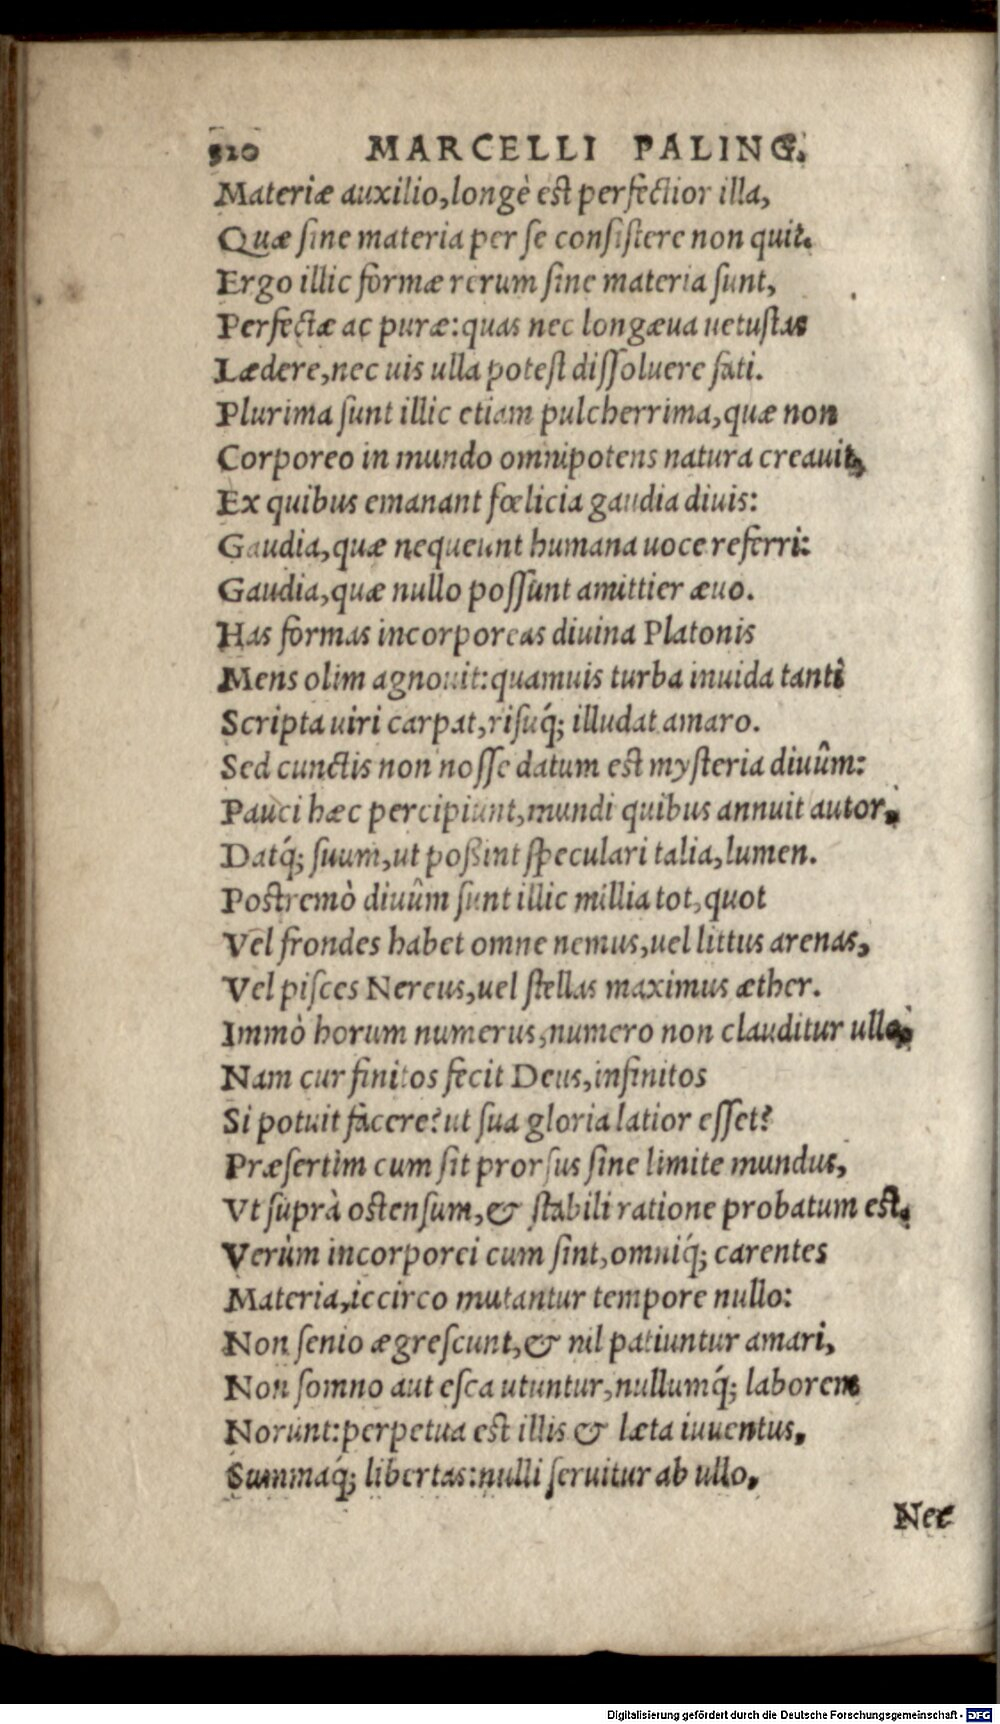 320 MARCELLI PALING.
Materiæ auxilio, longè est perfectior illa,
Quæ sine materia per se consistere non quit.
Ergo illic formæ rerum sine materia sunt,
Perfectæ ac puræ: quas nec longæua uetustas
Lædere, nec uis ulla potest dissoluere fati.
Plurima sunt illic etiam pulcherrima, quæ non
Corporeo in mundo omnipotens natura creauit,
Ex quibus emanant fœlicia gaudia diuis:
Gaudia, quæ nequeunt humana uoce referri:
Gaudia, quæ nullo possunt amittier æuo.
Has formas incorporeas diuina Platonis
Mens olim agnouit: quamuis turba inuida tanti
Scripta uiri carpat, risuq́; illudat amaro.
Sed cunctis non nosse datum est mysteria diuûm:
Pauci hæc percipiunt, mundi quibus annuit autor,
Datq́; suum, ut poßint speculari talia, lumen.
Postremò diuûm sunt illic millia tot, quot
Vel frondes habet omne nemus, uel littus arenas,
Vel pisces Nereus, uel stellas maximus æther.
Immò horum numerus, numero non clauditur ullo,
Nam cur finitos fecit Deus, infinitos
Si potuit facere? ut sua gloria latior esset?
Præsertim cum sit prorsus sine limite mundus,
Vt suprà ostensum, & stabili ratione probatum est.
Verùm incorporei cum sint, omniq́; carentes
Materia, iccirco mutantur tempore nullo:
Non senio ægrescunt, & nil patiuntur amari,
Non somno aut esca utuntur, nullumq́; laborem
Norunt: perpetua est illis & læta iuuentus,
Summaq́; libertas: nulli seruitur ab ullo,
Nec
Digitalisierung gefördert durch die Deutsche Forschungsgemeinschaft - DFG